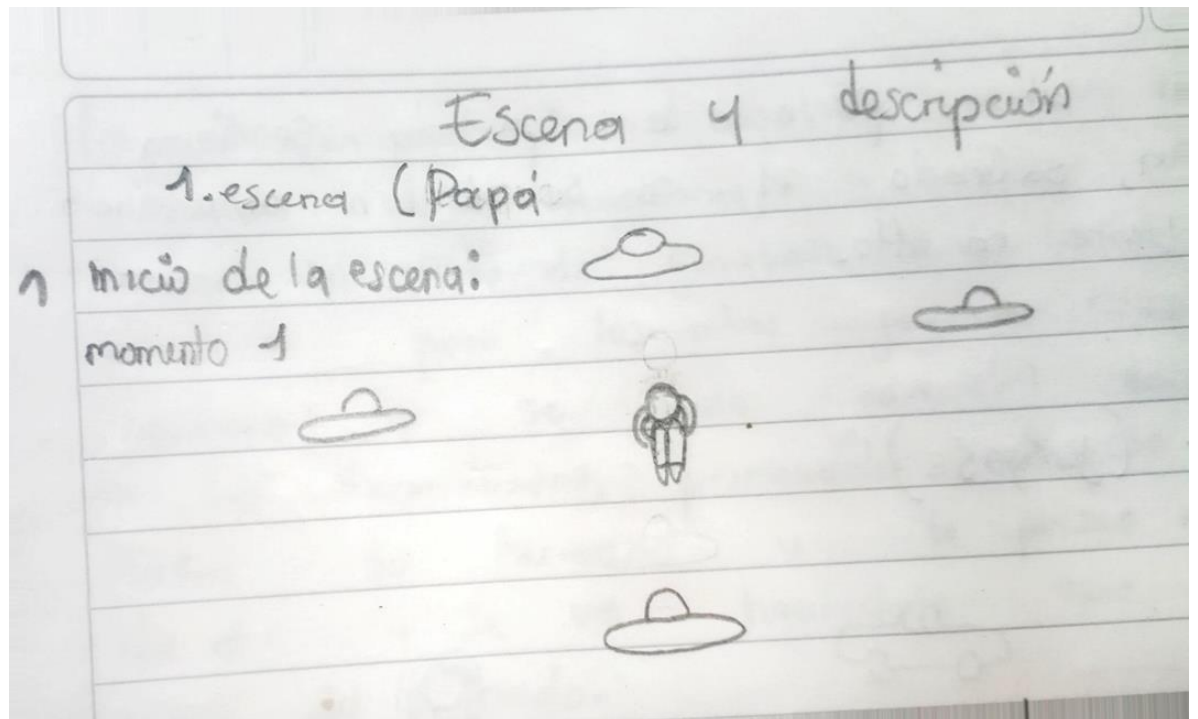 Escena y descripción
1. escena (Papá
1 inicio de la escena:
momento 1